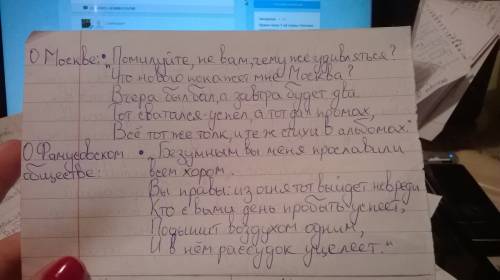 О Москве: • „Помилуйте, не вам, чему же удивляться?
Что нового покажет мне Москва?
Вчера был бал, а завтра будет два.
Тот сватался-успел, а тот дал промах,
Всё тот же толк, и те ж стихи в альбомах."
О Фамусовском • „Безумным вы меня прославили
обществе: всем хором.
Вы правы: из огня тот выйдет невредим
Кто с вами день пробыть успеет,
Подышит воздухом одним,
И в нём рассудок уцелеет."